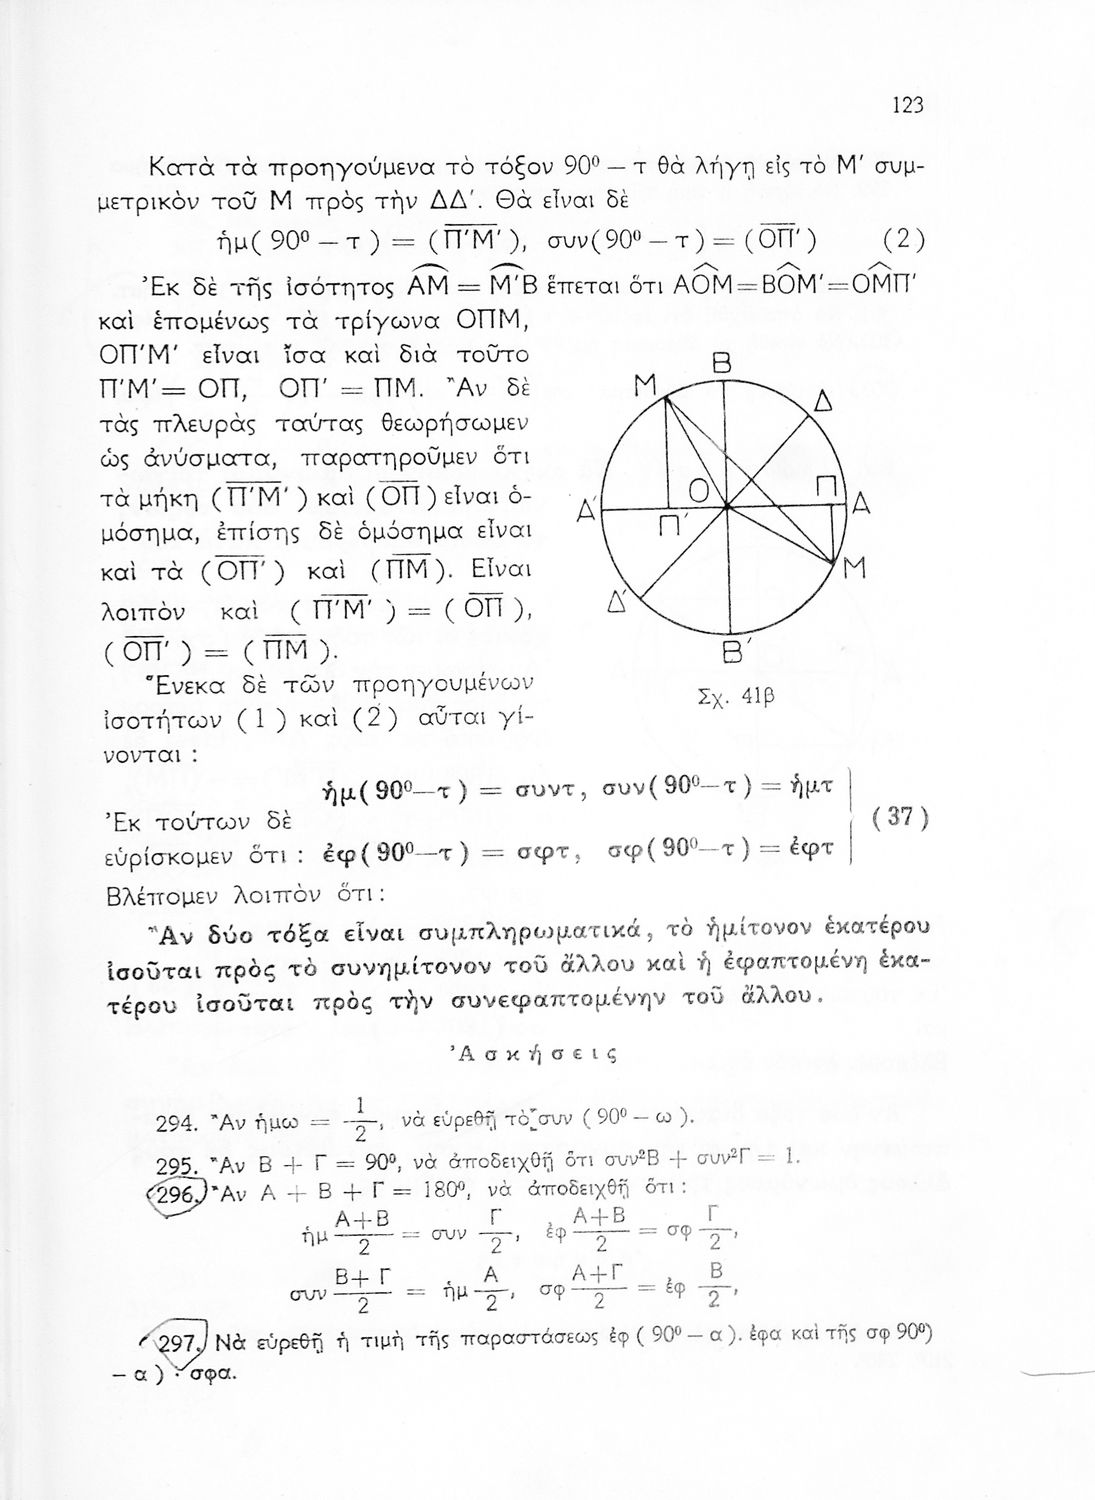 123
Κατὰ τὰ προηγούμενα τὸ τόξον 90⁰ — τ θὰ λήγῃ εἰς τὸ Μ′ συμ-
μετρικὸν τοῦ Μ πρὸς τὴν ΔΔ′. Θὰ εἶναι δὲ
ἡμ( 90⁰ — τ ) = (Π̅′̅Μ̅′ ), συν(90⁰ — τ) = (Ο̅Π̅′ ) (2)
Ἐκ δὲ τῆς ἰσότητος ΑΜ = Μ′Β ἕπεται ὅτι ΑΟ̂Μ=ΒΟ̂Μ′=ΟΜ̂Π′
καὶ ἑπομένως τὰ τρίγωνα ΟΠΜ,
ΟΠ′Μ′ εἶναι ἴσα καὶ διὰ τοῦτο
Π′Μ′= ΟΠ, ΟΠ′ = ΠΜ. Ἂν δὲ
τὰς πλευρὰς ταύτας θεωρήσωμεν
ὡς ἀνύσματα, παρατηροῦμεν ὅτι
τὰ μήκη (Π̅′̅Μ̅′ ) καὶ (Ο̅Π̅) εἶναι ὁ-
μόσημα, ἐπίσης δὲ ὁμόσημα εἶναι
καὶ τὰ (Ο̅Π̅′ ) καὶ (Π̅Μ̅). Εἶναι
λοιπὸν καὶ ( Π̅′̅Μ̅′ ) = ( Ο̅Π̅ ),
( Ο̅Π̅′ ) = ( Π̅Μ̅ ).
Β
Μ
Δ
Ο
Π
Δ′
Π′
Α
Μ
Δ′
Β′
Σχ. 41β
Ἕνεκα δὲ τῶν προηγουμένων
ἰσοτήτων ( 1 ) καὶ (2) αὗται γί-
νονται :
ἡμ( 90⁰—τ ) = συντ, συν( 90⁰—τ ) = ἡμτ
Ἐκ τούτων δὲ
(37)
εὑρίσκομεν ὅτι : ἐφ( 90⁰—τ ) = σφτ, σφ( 90⁰—τ ) = ἐφτ
Βλέπομεν λοιπὸν ὅτι :
Ἂν δύο τόξα εἶναι συμπληρωματικά, τὸ ἡμίτονον ἑκατέρου
ἰσοῦται πρὸς τὸ συνημίτονον τοῦ ἄλλου καὶ ἡ ἐφαπτομένη ἑκα-
τέρου ἰσοῦται πρὸς τὴν συνεφαπτομένην τοῦ ἄλλου.
Ἀσκήσεις
294. Ἂν ἡμω = 1/2, νὰ εὑρεθῇ τὸ συν ( 90⁰ — ω ).
295. Ἂν Β + Γ = 90⁰, νὰ ἀποδειχθῇ ὅτι συν²Β + συν²Γ = 1.
296. Ἂν Α + Β + Γ = 180⁰, νὰ ἀποδειχθῇ ὅτι :
ἡμ Α+Β/2 = συν Γ/2, ἐφ Α+Β/2 = σφ Γ/2,
συν Β+Γ/2 = ἡμ Α/2, σφ Α+Γ/2 = ἐφ Β/2,
297. Νὰ εὑρεθῇ ἡ τιμὴ τῆς παραστάσεως ἐφ ( 90⁰ — α ). ἐφα καὶ τῆς σφ 90⁰)
— α ) · σφα.